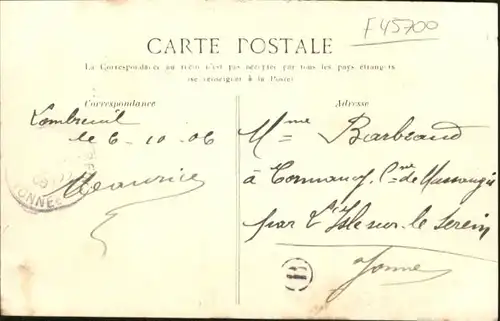 F45700
CARTE POSTALE
La Correspondance au recto n'est pas acceptée par tous les pays étrangers
(se renseigner à la Poste)
Correspondance
Adresse
Lombreuil
le 6-10-06
Maurice
Mme Barbraud
à Cormarcy, Cne de Massangis
par L'Isle sur le Serein
Yonne
B
YONNE